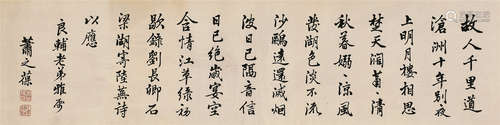 故人千里道
滄洲十年別夜
上明月樓相思
楚天闊蕭蕭清
秋暮嫋嫋涼風
發湖色淡不流
沙鷗遠還滅烟
波日已隔音信
日已絕歲宴空
含情江草綠
歇錄劉長卿石
梁湖寄陸詩
以應
良輔老弟雅屬
蕭之葆